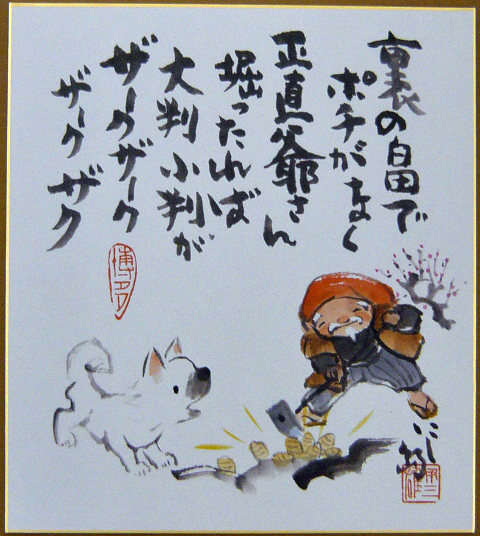 裏の畠で
ポチがなく
正直爺さん
掘ったれば
大判小判が
ザークザーク
ザークザク
博多